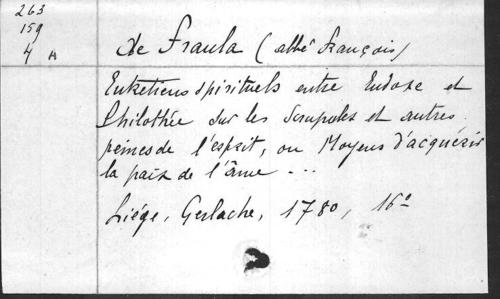 263
159
4 A
de Fraula (abbé François)
Entretiens spirituels entre Eudoxe et
Philothée sur les Scrupules et autres
peines de l'esprit, ou Moyens d'acquérir
la paix de l'âme ...
Liége, Gerlache, 1780, 16º